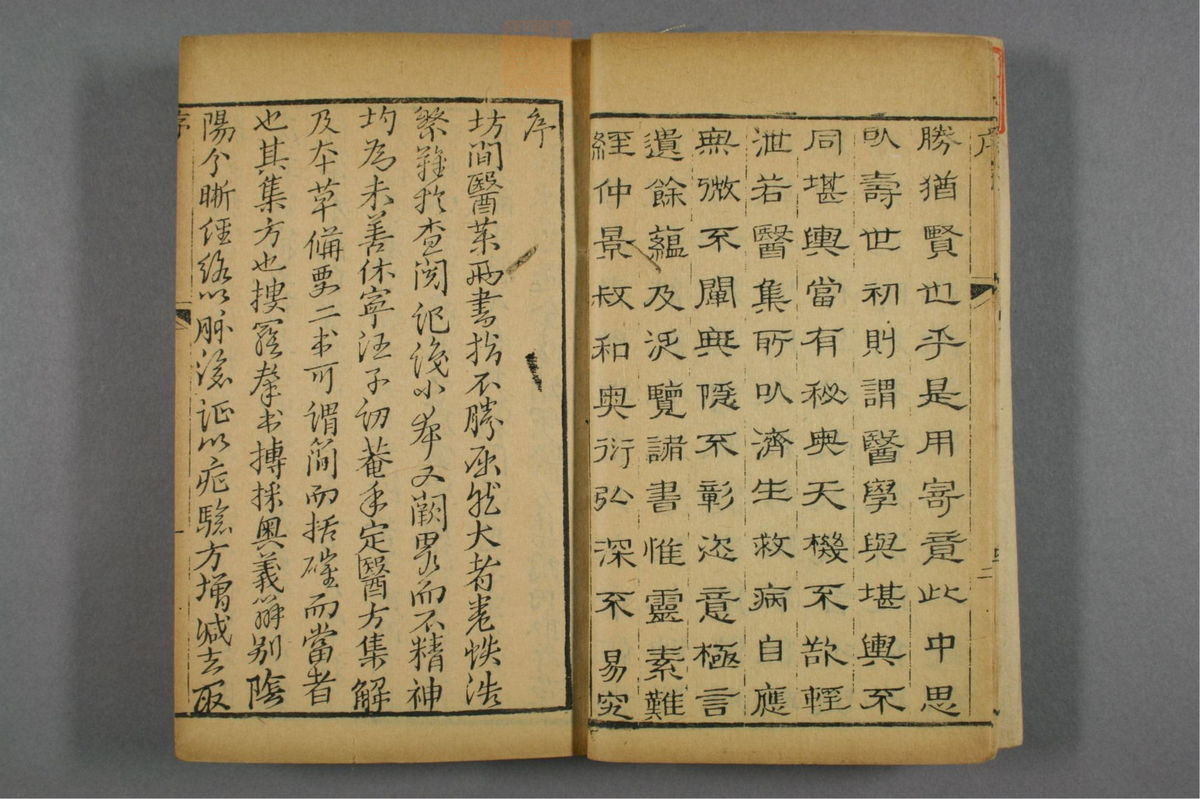 勝猶賢也乎是用寄意此中思
㕥壽世初則謂醫學與堪輿不
同堪輿當有秘典天機不欲輕
泄若醫集所㕥濟生救病自應
無微不闡無隱不彰恣意極言
遺餘蘊及泛覽諸書惟靈素難
經仲景叔和奧衍弘深不易究
序
坊間醫藥兩書指不勝屈然大者卷帙浩
繁難於查閱記誦小者又闕畧而不精神
均為未善休寧汪子訒菴手定醫方集解
及本草備要二書可謂簡而括確而當者
也其集方也摟羅羣書摶採奧義辯別陰
陽分晰經絡以脉證以症驗方增減去取